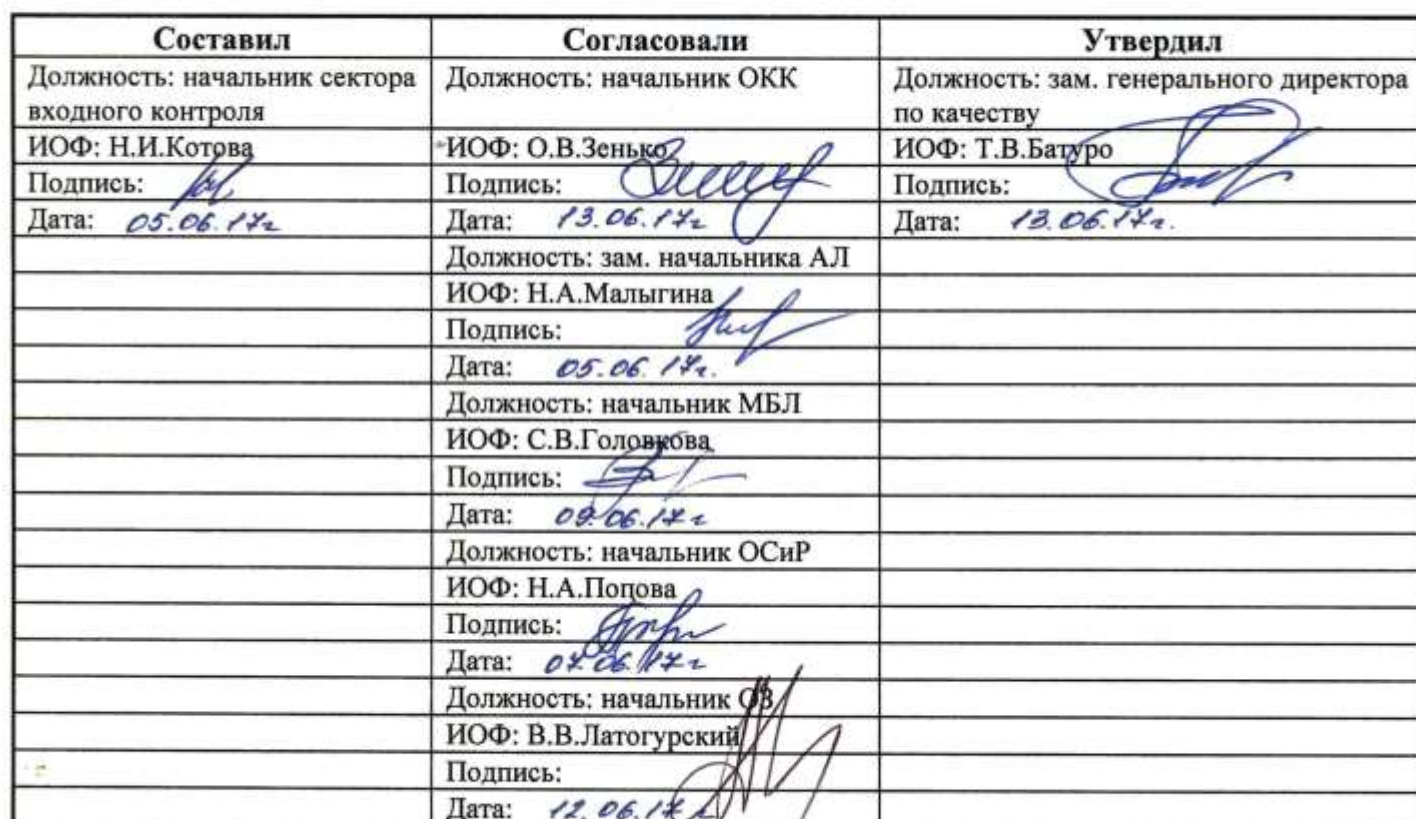 Составил
Согласовали
Утвердил
Должность: начальник сектора
входного контроля
Должность: начальник ОКК
Должность: зам. генерального директора
по качеству
ИОФ: Н.И.Котова
ИОФ: О.В.Зенько
ИОФ: Т.В.Батуро
Подпись:
Подпись:
Подпись:
Дата: 05.06.17г
Дата: 13.06.17г
Дата: 13.06.17г.
Должность: зам. начальника АЛ
ИОФ: Н.А.Малыгина
Подпись:
Дата: 05.06.17г.
Должность: начальник МБЛ
ИОФ: С.В.Головкова
Подпись:
Дата: 09.06.17г
Должность: начальник ОСиР
ИОФ: Н.А.Попова
Подпись:
Дата: 07.06.17г
Должность: начальник ОЗ
ИОФ: В.В.Латогурский
Подпись:
Дата: 12.06.17г